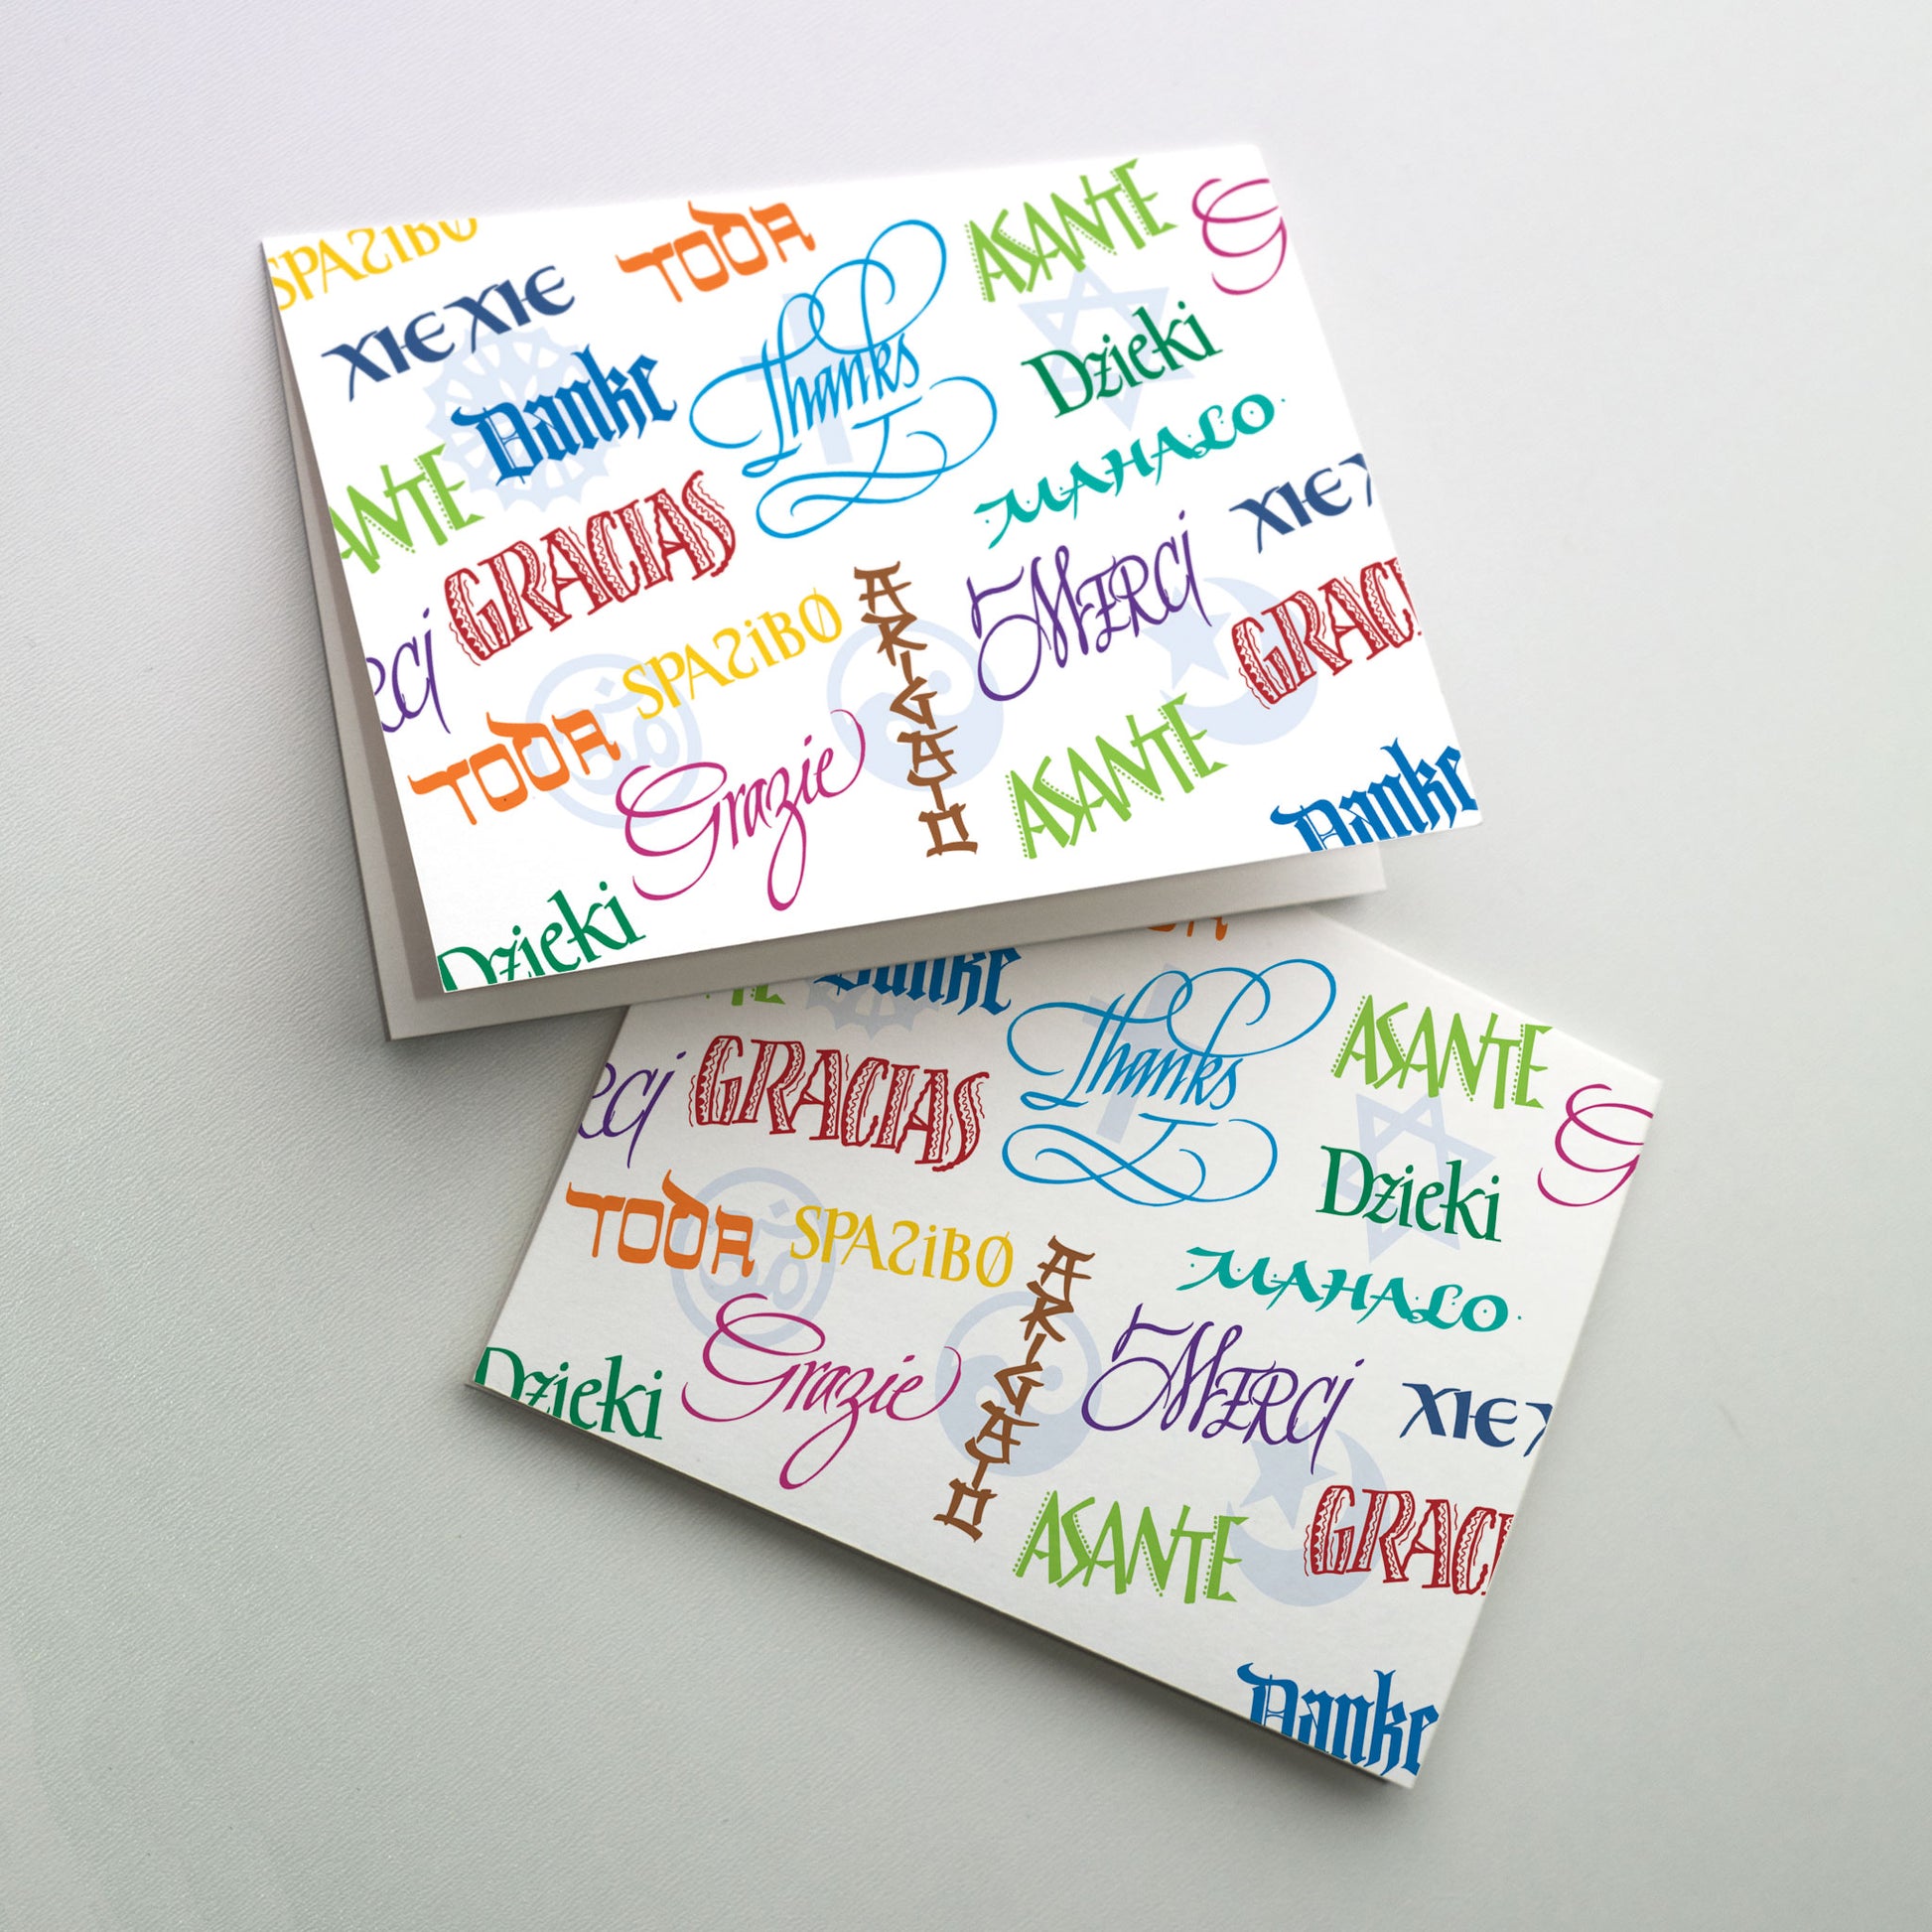 SPASIBO
TODA
ASANTE
G
XIE XIE
Thanks
Danke
Dzieki
MAHALO
ANTE
GRACIAS
XIE X
MERCI
ARIGATO
SPASIBO
GRACI
RCI
TODA
Grazie
ASANTE
Danke
Dzieki
DA
TE
Danke
Thanks
ASANTE
G
RCI
GRACIAS
Dzieki
TODA
SPASIBO
ARIGATO
MAHALO
Dzieki
Grazie
MERCI
XIE X
ASANTE
GRACI
Danke